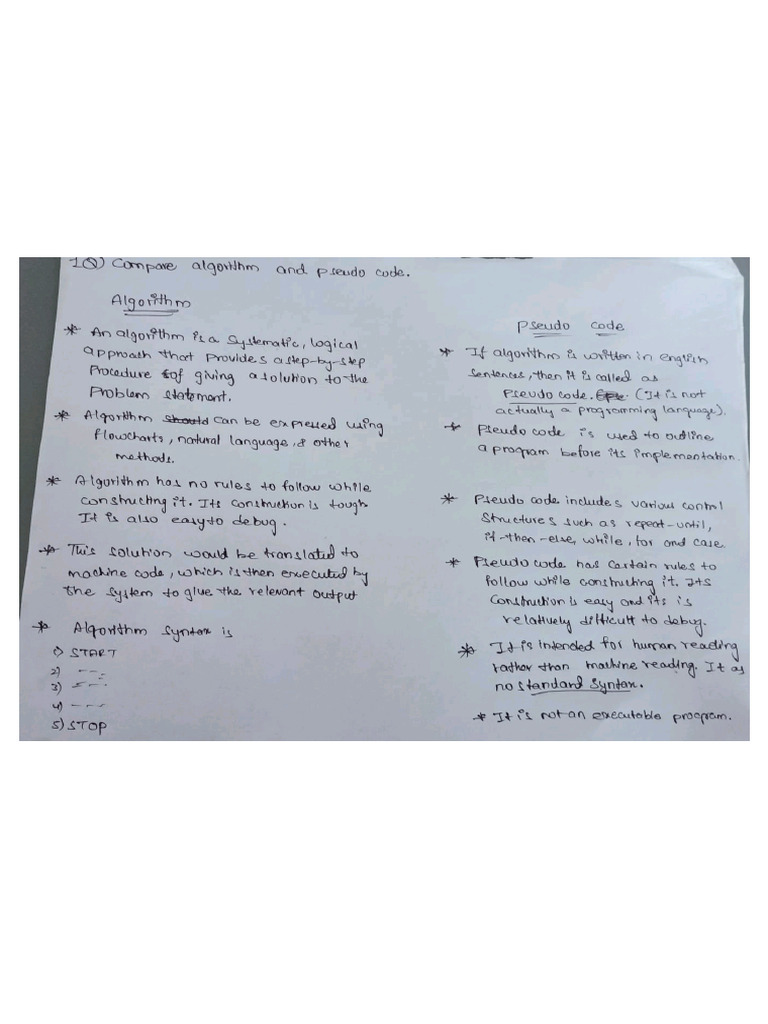 1Q) Compare algorithm and pseudo code.
Algorithm
* An algorithm is a systematic, logical
approach that provides a step-by-step
Procedure of giving a solution to the
Problem statement.
* Algorithm should can be expressed using
flowcharts, natural language, & other
methods.
* Algorithm has no rules to follow while
constructing it. Its construction is tough
It is also easy to debug.
* This solution would be translated to
machine code, which is then executed by
the system to give the relevant output
* Algorithm syntax is
1) START
2) ---
3) ---
4) ---
5) STOP
Pseudo code
* If algorithm is written in english
sentences, then it is called as
Pseudo code. (It is not
actually a programming language).
* Pseudo code is used to outline
a program before its implementation.
* Pseudo code includes various control
structures such as repeat-until,
if-then-else, while, for and case.
* Pseudo code has certain rules to
follow while constructing it. Its
Construction is easy and its is
relatively difficult to debug.
* It is intended for human reading
rather than machine reading. It as
no standard syntax.
* It is not an executable program.